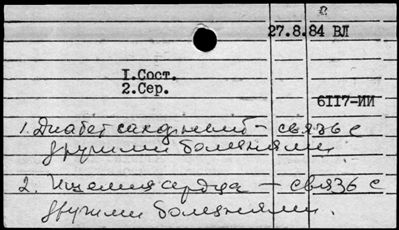 27.8.84 ВЛ
1.Сост.
2.Сер.
6II7-ИИ
1. Диабет сахарный – связь с
другими болезнями
2. Ишемия сердца – связь с
другими болезнями.